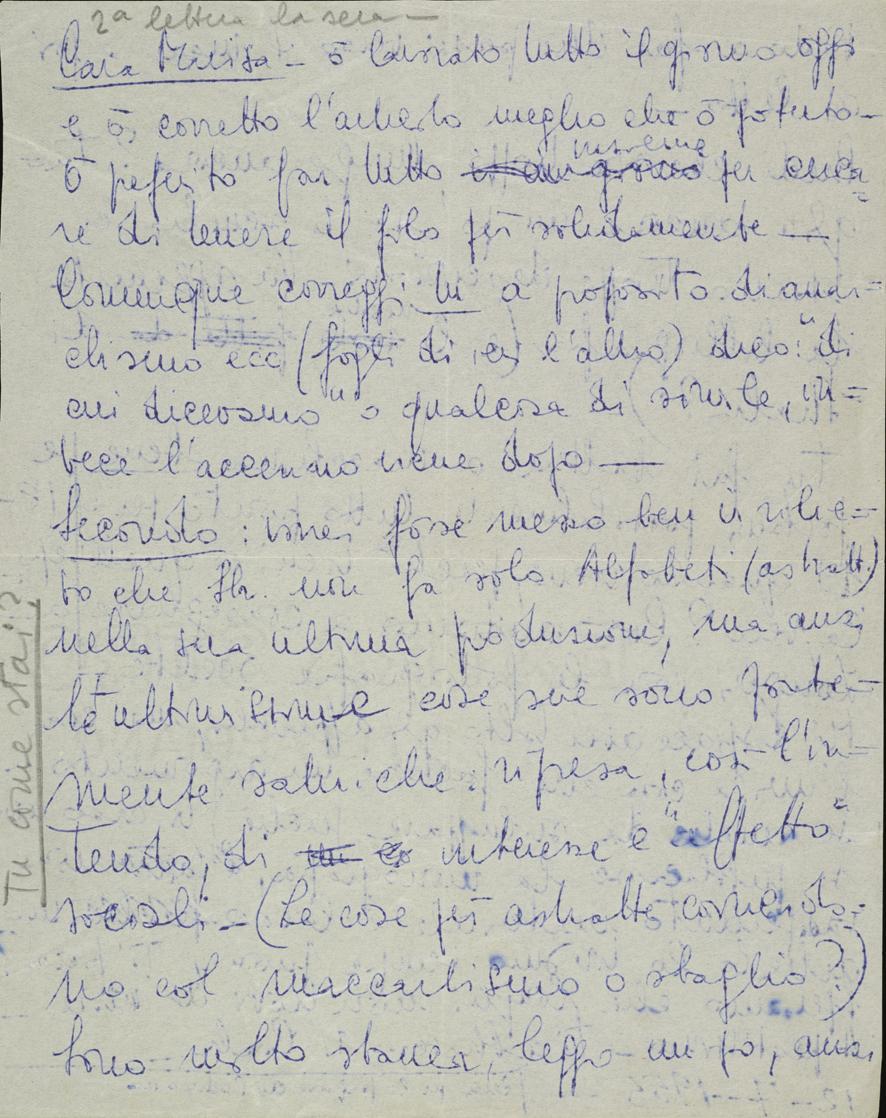 2a lettera la sera —
Cara Marisa — ò lavorato tutto il giorno oggi
e ò corretto l'acherlo meglio che ò potuto —
insieme
Ò preferito far tutto per cerca=
re di tenere il filo più solidamente —
Comunque correggi tu a proposito di anar=
chismo ecc (fogli di l'altro) dico: "di
cui dicevamo" o qualcosa di simile, in=
vece l'accenno viene dopo —
Secondo : vorrei fosse messo ben in rilie=
vo che Sh. non fa solo Alfabeti (astratt.)
nella sua ultima produzione, ma anzi
le ultimissime cose sue sono forte—
mente satiriche. ripresa, così l'in—
tendo, di interesse e "effetto"
sociali — (Le cose più astratte coincido=
no col maccartismo o sbaglio?)
Sono molto stanca, leggo un po, anzi
Tu come stai?